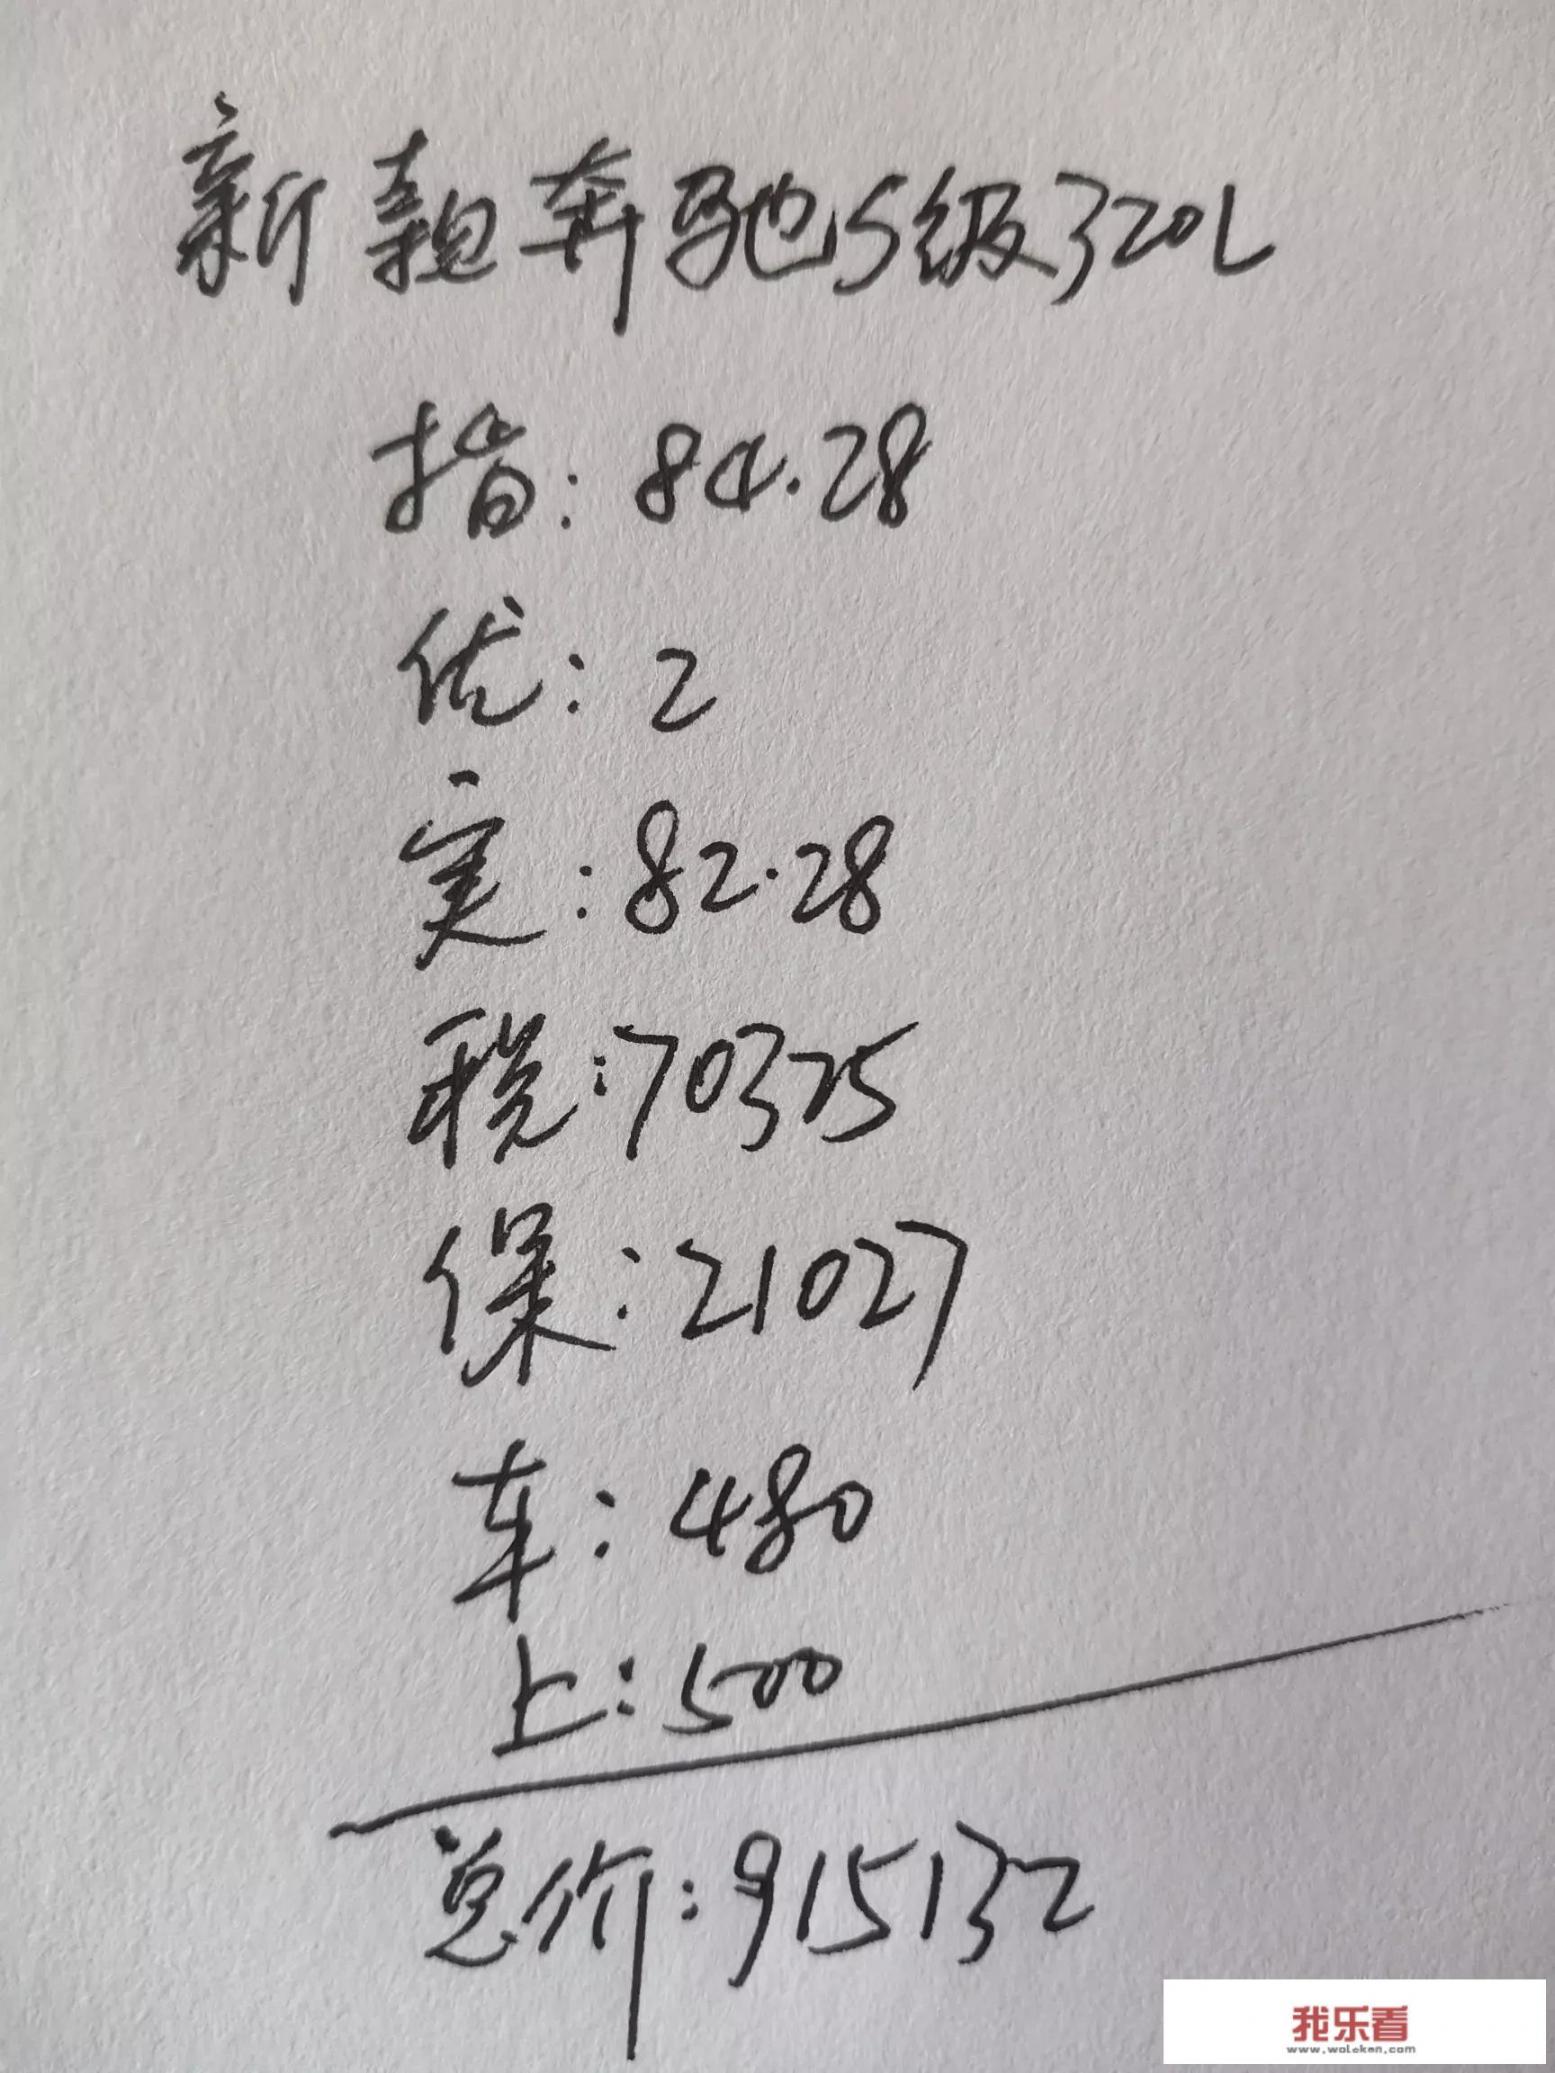 新款奔驰S级320L
指:84.28
优:2
实:82.28
税:70325
保:21027
车:480
上:500
总价:915132
我乐看
www.woleken.com